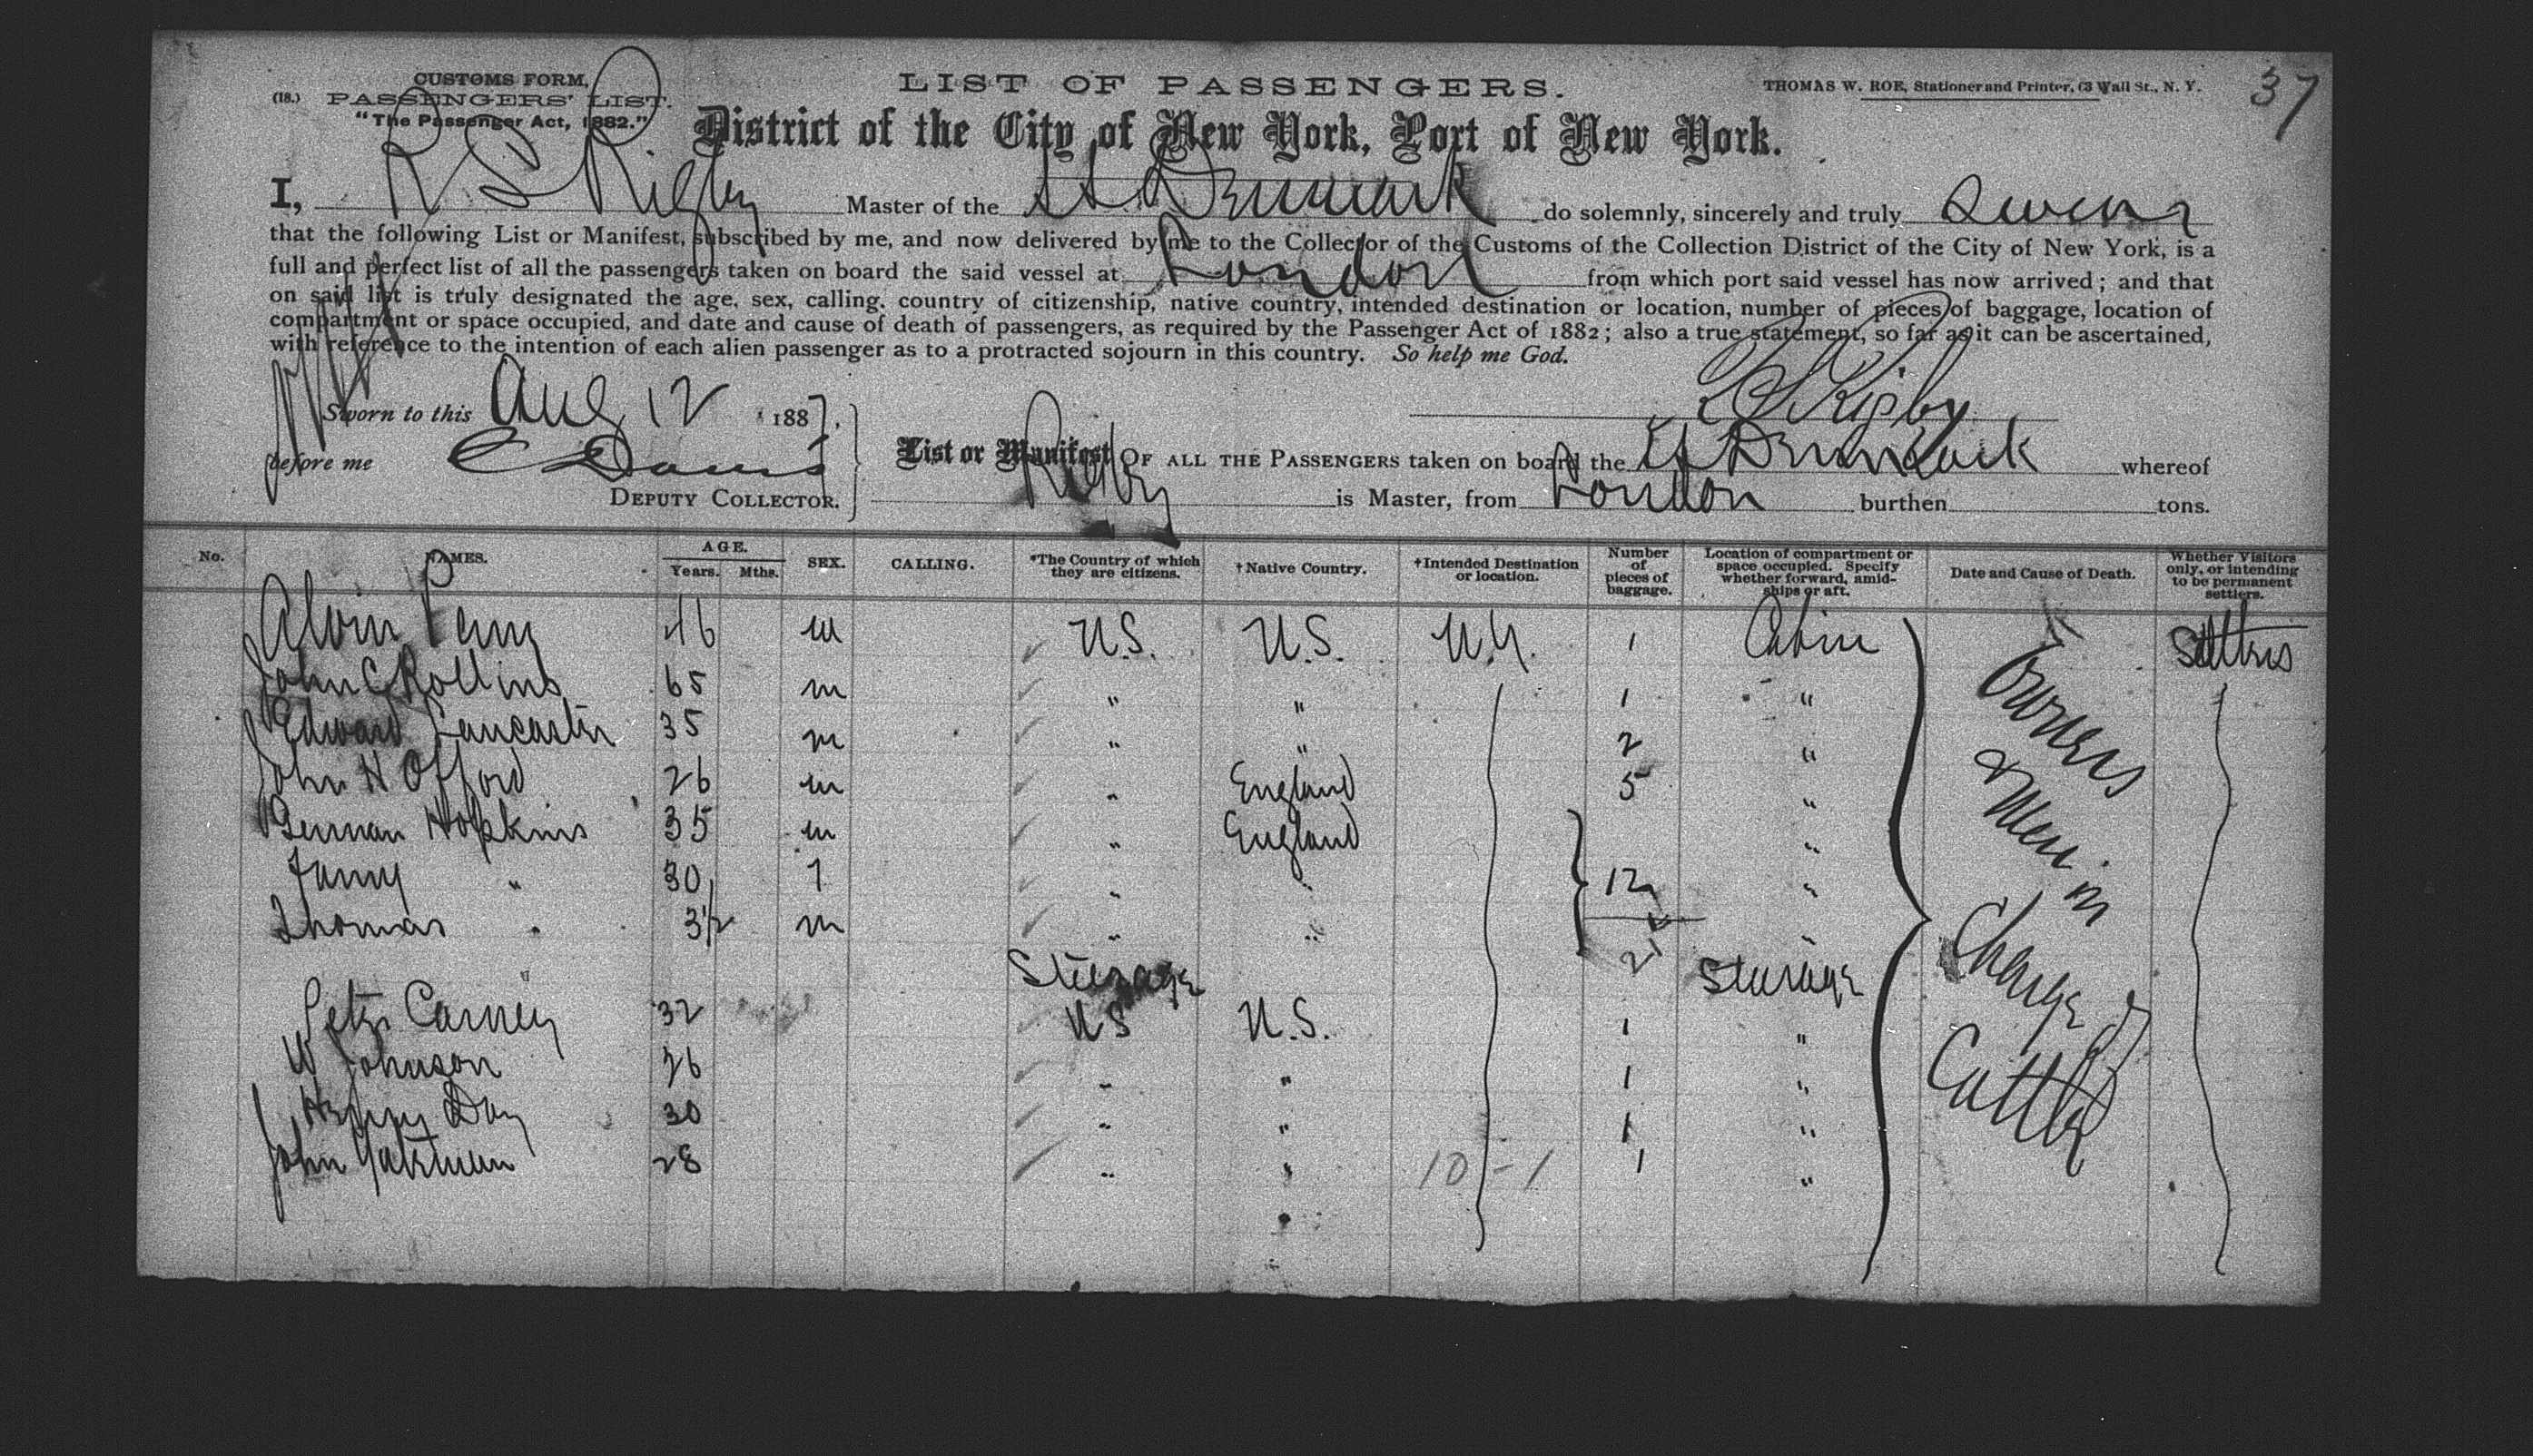 CUSTOMS FORM,
(18.) PASSENGERS' LIST.
"The Passenger Act, 1882."
LIST OF PASSENGERS.
THOMAS W. ROE, Stationer and Printer, 63 Wall St., N. Y.
37
District of the City of New York, Port of New York.
I, R S Rigby Master of the SS Denmark do solemnly, sincerely and truly swear
that the following List or Manifest, subscribed by me, and now delivered by me to the Collector of the Customs of the Collection District of the City of New York, is a
full and perfect list of all the passengers taken on board the said vessel at London from which port said vessel has now arrived; and that
on said list is truly designated the age, sex, calling, country of citizenship, native country, intended destination or location, number of pieces of baggage, location of
compartment or space occupied, and date and cause of death of passengers, as required by the Passenger Act of 1882; also a true statement, so far as it can be ascertained,
with reference to the intention of each alien passenger as to a protracted sojourn in this country. So help me God.
Sworn to this Aug 12 1887, Rigby
before me
DEPUTY COLLECTOR.
List or Manifest OF ALL THE PASSENGERS taken on board the SS Denmark whereof
Rigby is Master, from London burthen tons.
No. NAMES. AGE. Years. Mths. SEX. CALLING. *The Country of which they are citizens. †Native Country. †Intended Destination or location. Number of pieces of baggage. Location of compartment or space occupied. Specify whether forward, amidships or aft. Date and Cause of Death. Whether Visitors only, or intending to be permanent settlers.
Alvin 46 m U.S. U.S. N.Y. 1 Cabin Settlers
John C Rollins 65 m " " 1 "
Edward Lancaster 35 m " " 2 "
John H Offord 26 m " England 5 "
Hopkins 35 m " England "
Fanny " 30 f " " 12 "
Thomas " 3½ m " " "
21
Steerage Steerage
Peter Carney 32 US U.S. 1 "
W Johnson 26 " " 1 "
Henry Day 30 " " 1 "
John 28 " " 10-1 1 "
Owners
& Men in
Charge of
Cattle